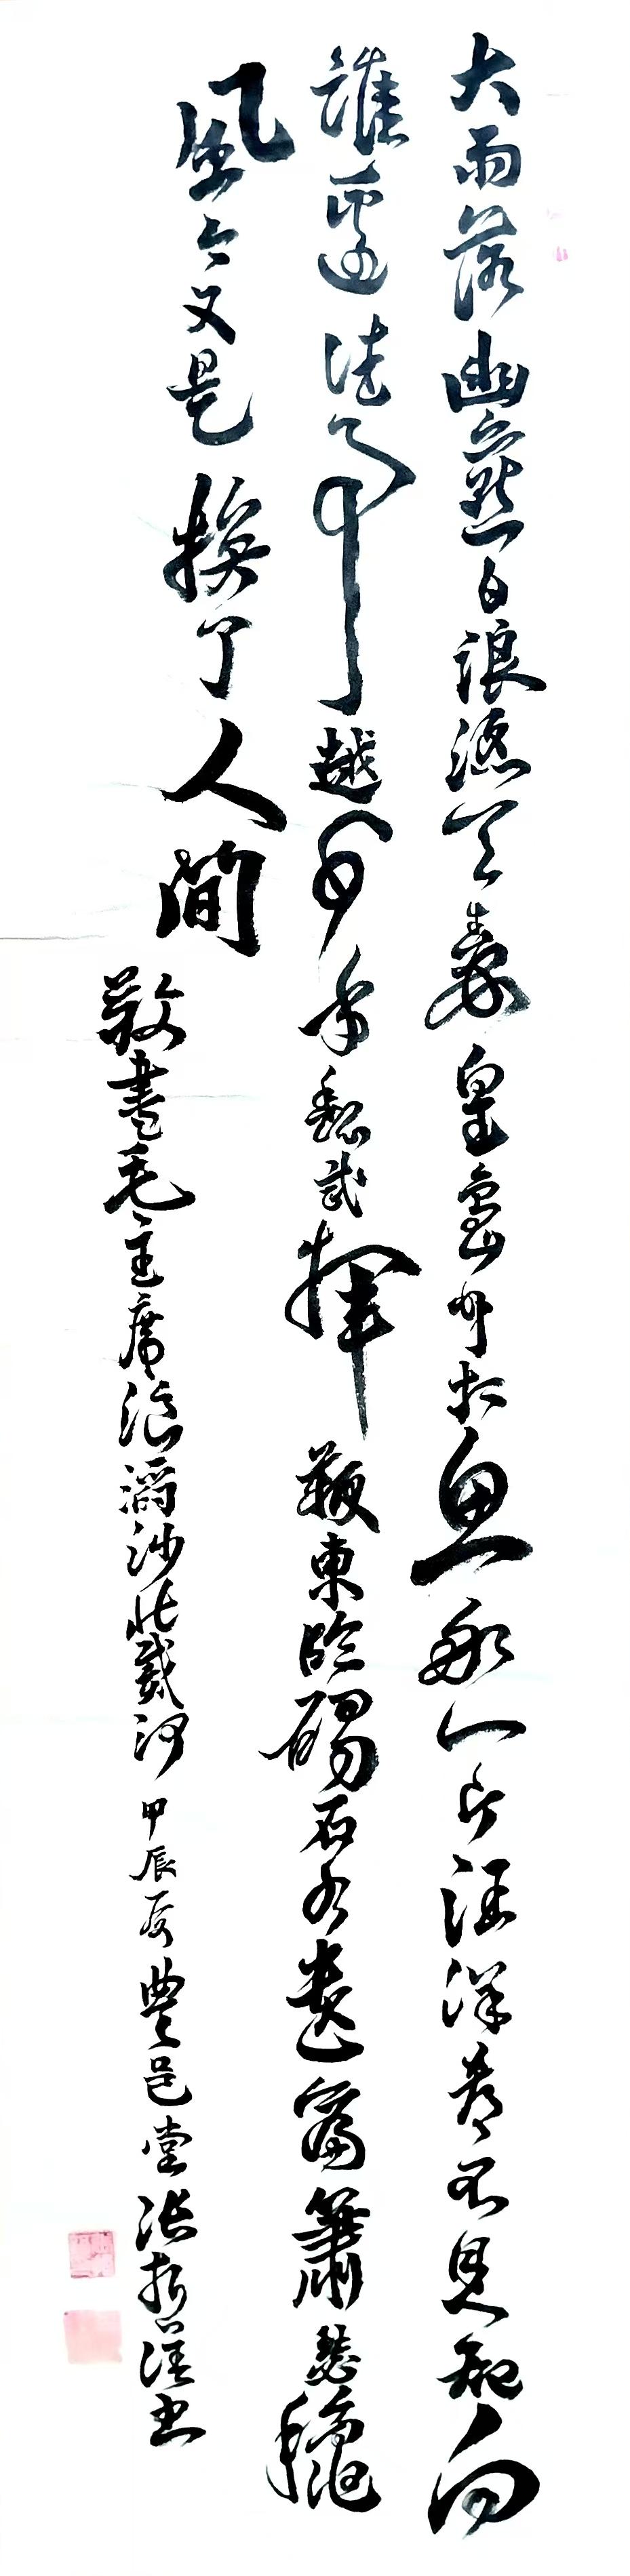 大雨落幽燕白浪滔天秦皇島外打魚船一片汪洋都不見知向
誰邊往事越千年魏武揮鞭東臨碣石有遺篇蕭瑟秋
風今又是換了人間
敬書毛主席浪淘沙北戴河甲辰夏豐邑堂張書